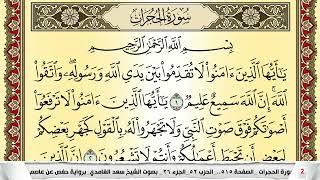 سُورَةُ الحُجُرَاتِ
بِسْمِ اللَّهِ الرَّحْمَٰنِ الرَّحِيمِ
يَٰٓأَيُّهَا الَّذِينَ ءَامَنُوا۟ لَا تُقَدِّمُوا۟ بَيْنَ يَدَىِ اللَّهِ وَرَسُولِهِۦ وَاتَّقُوا۟
اللَّهَ إِنَّ اللَّهَ سَمِيعٌ عَلِيمٌ ١ يَٰٓأَيُّهَا الَّذِينَ ءَامَنُوا۟ لَا تَرْفَعُوٓا۟
أَصْوَٰتَكُمْ فَوْقَ صَوْتِ النَّبِىِّ وَلَا تَجْهَرُوا۟ لَهُۥ بِالْقَوْلِ كَجَهْرِ بَعْضِكُمْ
لِبَعْضٍ أَن تَحْبَطَ أَعْمَٰلُكُمْ وَأَنتُمْ لَا تَشْعُرُونَ ٢ إِنَّ الَّذِينَ
2 ورة الحجرات . الصفحة ٥١٥... الحزب ٥٢ الجزء ٢٦ بصوت الشيخ سعد الغامدي. برواية حفص عن عاصم